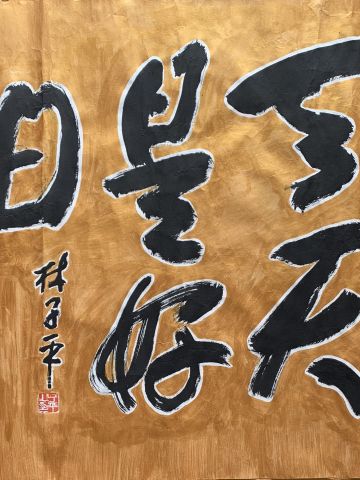 天天
是好
日
林子平